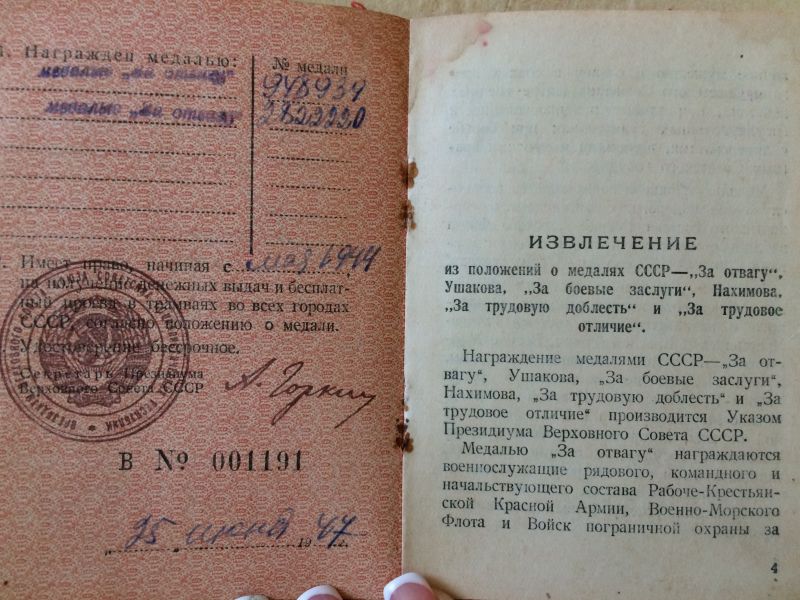 Награжден медалью:
№ медали
медалью „За отвагу"
948934
медалью „За отвагу"
2822220
Имеет право, начиная с мая 1944
на получение денежных выдач и бесплат-
ный проезд в трамваях во всех городах
СССР, согласно положению о медали.
Удостоверение бессрочное.
Секретарь Президиума
Верховного Совета СССР
А. Горкин
В № 001191
„25 июня 1947
ИЗВЛЕЧЕНИЕ
из положений о медалях СССР—„За отвагу",
Ушакова, „За боевые заслуги", Нахимова,
„За трудовую доблесть" и „За трудовое
отличие".
Награждение медалями СССР—„За от-
вагу", Ушакова, „За боевые заслуги",
Нахимова, „За трудовую доблесть" и „За
трудовое отличие" производится Указом
Президиума Верховного Совета СССР.
Медалью „За отвагу" награждаются
военнослужащие рядового, командного и
начальствующего состава Рабоче-Крестьян-
ской Красной Армии, Военно-Морского
Флота и Войск пограничной охраны за
4